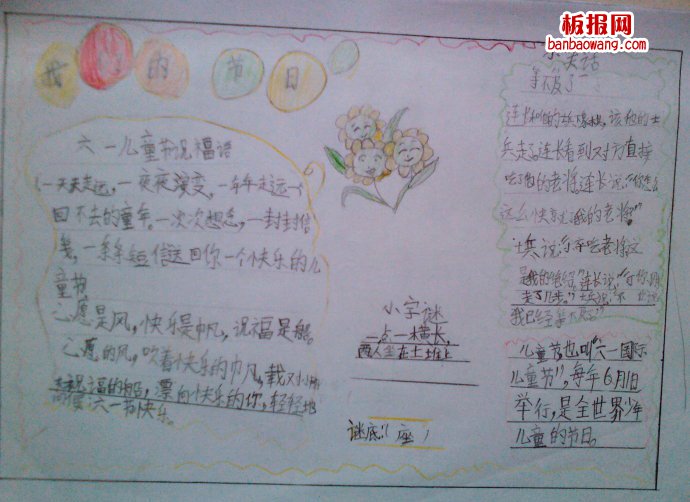 板报网
banbaowang.com
我的节日
六一儿童节祝福语
一天天走远,一夜夜演变,一年年走远一
回不去的童年。一次次想念,一封封信
笺,一条条短信送回你一个快乐的儿
童节
心愿是风,快乐是帆,祝福是船。
心愿的风,吹着快乐的帆,载
祝福的船,漂向快乐的你,轻轻地
六一节快乐。
小字谜
一点一横长,
两人坐在土堆上
谜底:(座)
小笑话
等不及了
兵走了连长看到对方直接
吃了的老将,连长说:
这么快就 我的老将
兵说
儿童节也叫“六一国际
儿童节”,每年6月1日
举行,是全世界少年
儿童的节日。